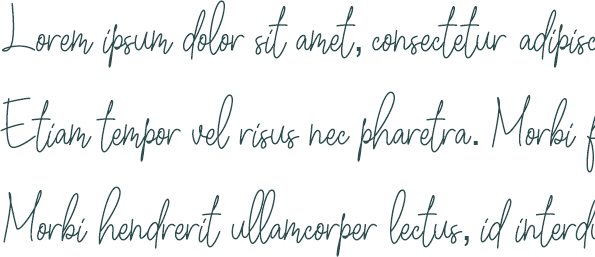 Lorem ipsum dolor sit amet, consectetur adipisc
Etiam tempor vel risus nec pharetra. Morbi f
Morbi hendrerit ullamcorper lectus, id interdu